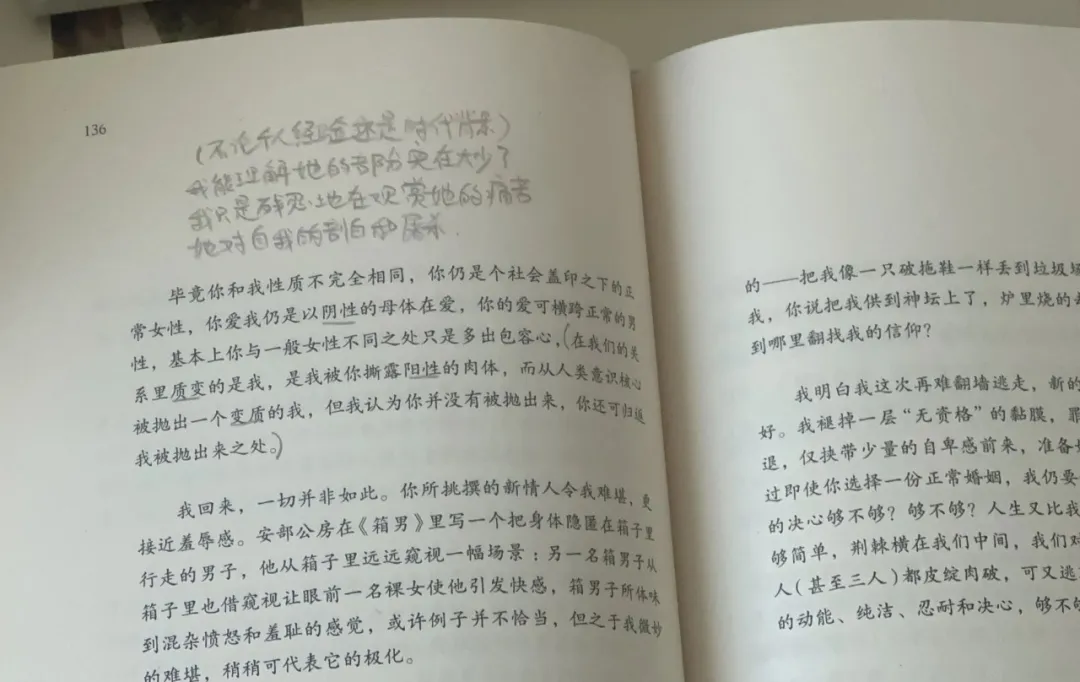 136
(不论个人经验还是时代背景)
我能理解她的部分实在太少了
我只是残忍地在观赏她的痛苦
她对自我的剖白和屠杀.
毕竟你和我性质不完全相同，你仍是个社会盖印之下的正
常女性，你爱我仍是以阴性的母体在爱，你的爱可横跨正常的男
性，基本上你与一般女性不同之处只是多出包容心，(在我们的关
系里质变的是我，是我被你撕露阳性的肉体，而从人类意识核心
被抛出一个变质的我，但我认为你并没有被抛出来，你还可归返
我被抛出来之处。)
我回来，一切并非如此。你所挑撰的新情人令我难堪，更
接近羞辱感。安部公房在《箱男》里写一个把身体隐匿在箱子里
行走的男子，他从箱子里远远窥视一幅场景：另一名箱男子从
箱子里也借窥视让眼前一名裸女使他引发快感，箱男子所体味
到混杂愤怒和羞耻的感觉，或许例子并不恰当，但之于我微妙
的难堪，稍稍可代表它的极化。
的——把我像一只破拖鞋一样丢到垃圾
我，你说把我供到神坛上了，炉里烧的
到哪里翻找我的信仰？
我明白我这次再难翻墙逃走，新的
好。我褪掉一层“无资格”的黏膜，
退，仅挟带少量的自卑感前来，准备
过即使你选择一份正常婚姻，我仍要
的决心够不够？够不够？人生又比我
够简单，荆棘横在我们中间，我们对
人(甚至三人)都皮绽肉破，可又逃
的动能、纯洁、忍耐和决心，够不够